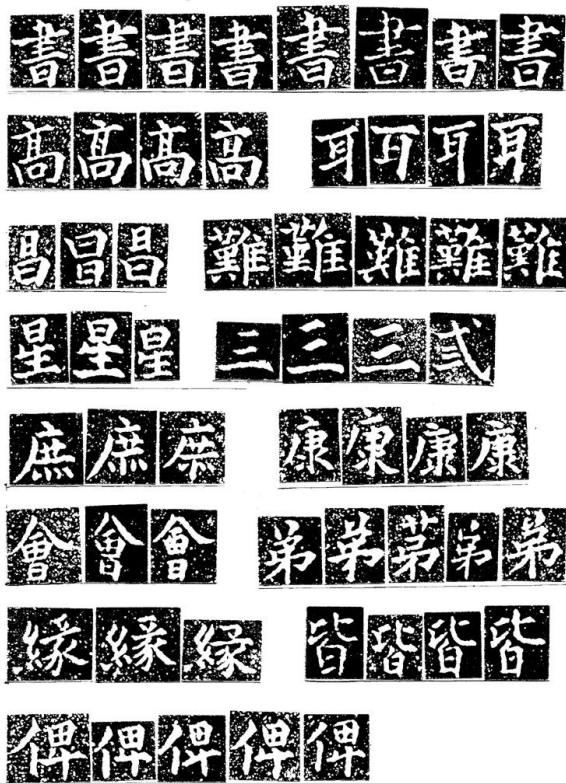 書書書書書書書書
高高高高 耳耳耳耳
昌昌昌 難難難難難
星星星 三三三弎
庶庶庶 康康康康
會會會 弟弟弟弟弟
緣緣緣 皆皆皆皆
俾俾俾俾俾